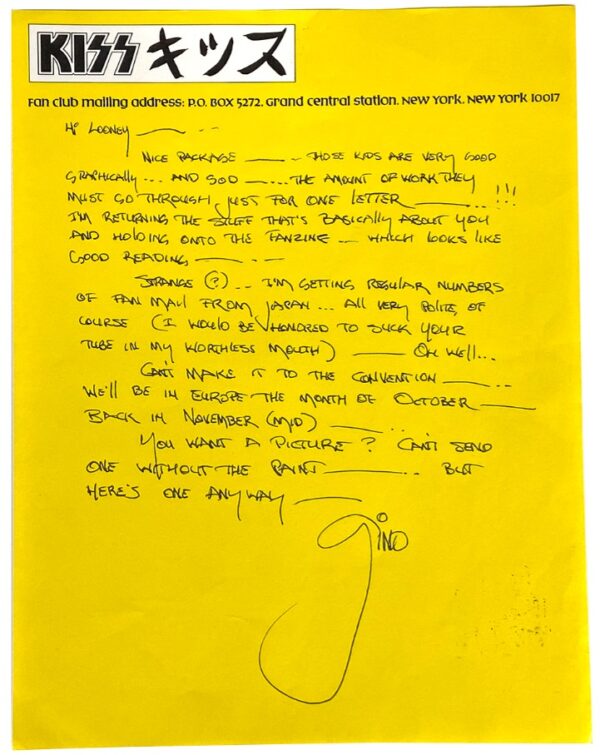 KISS キッス
Fan club mailing address: P.O. BOX 5272, Grand Central Station, New York, New York 10017
Hi Looney — - -
NICE PACKAGE — - . THOSE KIDS ARE VERY GOOD
GRAPHICALLY ... AND SOD — .... THE AMOUNT OF WORK THEY
MUST GO THROUGH, JUST FOR ONE LETTER — ...!!!
I'M RETURNING THE STUFF THAT'S BASICALLY ABOUT YOU
AND HOLDING ONTO THE FANZINE — WHICH LOOKS LIKE
GOOD READING — - - .
STRANGE (?) .. I'M GETTING REGULAR NUMBERS
OF FAN MAIL FROM JAPAN ... ALL VERY POLITE, OF
COURSE (I WOULD BE HONORED TO SUCK YOUR
TUBE IN MY WORTHLESS MOUTH) — OH WELL...
CAN'T MAKE IT TO THE CONVENTION — - ..
WE'LL BE IN EUROPE THE MONTH OF OCTOBER —
BACK IN NOVEMBER (MID) — - ..
YOU WANT A PICTURE? CAN'T SEND
ONE WITHOUT THE PAINT — - .. BUT
HERE'S ONE ANYWAY —
gino